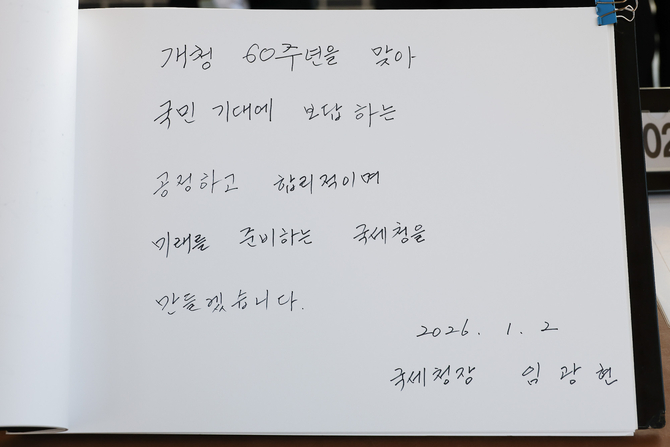 개청 60주년을 맞아
국민 기대에 보답하는
공정하고 합리적이며
미래를 준비하는 국세청을
만들겠습니다.
2026. 1. 2
국세청장 임광현
02